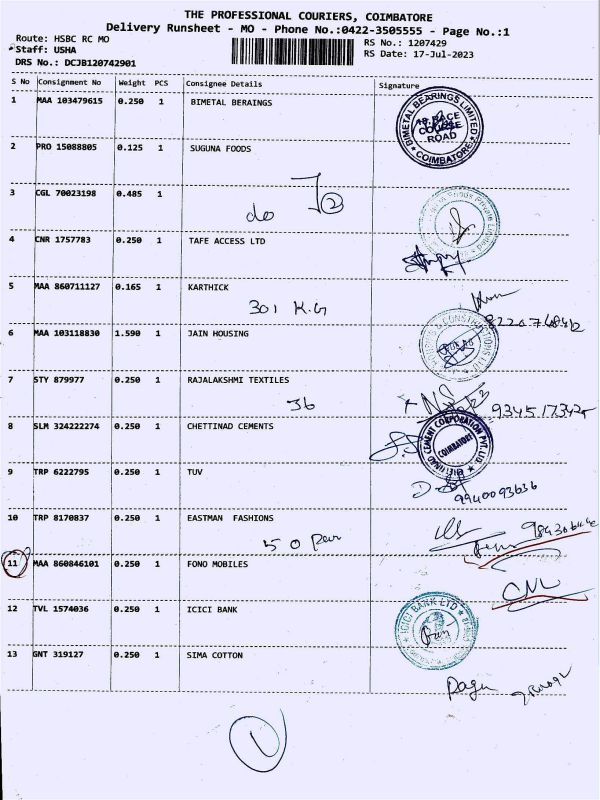 THE PROFESSIONAL COURIERS, COIMBATORE
Delivery Runsheet - MO - Phone No.:0422-3505555 - Page No.:1
Route: HSBC RC MO
Staff: USHA
DRS No.: DCJB120742901
RS No.: 1207429
RS Date: 17-Jul-2023
S No Consignment No Weight PCS Consignee Details Signature
1 MAA 103479615 0.250 1 BIMETAL BERAINGS
BIMETAL BEARINGS LIMITED
RACE
COURSE
ROAD
COIMBATORE
2 PRO 15088805 0.125 1 SUGUNA FOODS
3 CGL 70023198 0.485 1
do
Foods Private Limited
4 CNR 1757783 0.250 1 TAFE ACCESS LTD
5 MAA 860711127 0.165 1 KARTHICK
301 K.G
6 MAA 103118830 1.590 1 JAIN HOUSING
7 STY 879977 0.250 1 RAJALAKSHMI TEXTILES
36
8 SLM 324222274 0.250 1 CHETTINAD CEMENTS
CHETTINAD CEMENT CORPORATION PVT. LTD
COIMBATORE
9 TRP 6222795 0.250 1 TUV
9940093636
10 TRP 8170837 0.250 1 EASTMAN FASHIONS
11 MAA 860846101 0.250 1 FONO MOBILES
12 TVL 1574036 0.250 1 ICICI BANK
ICICI BANK LTD
13 GNT 319127 0.250 1 SIMA COTTON
1